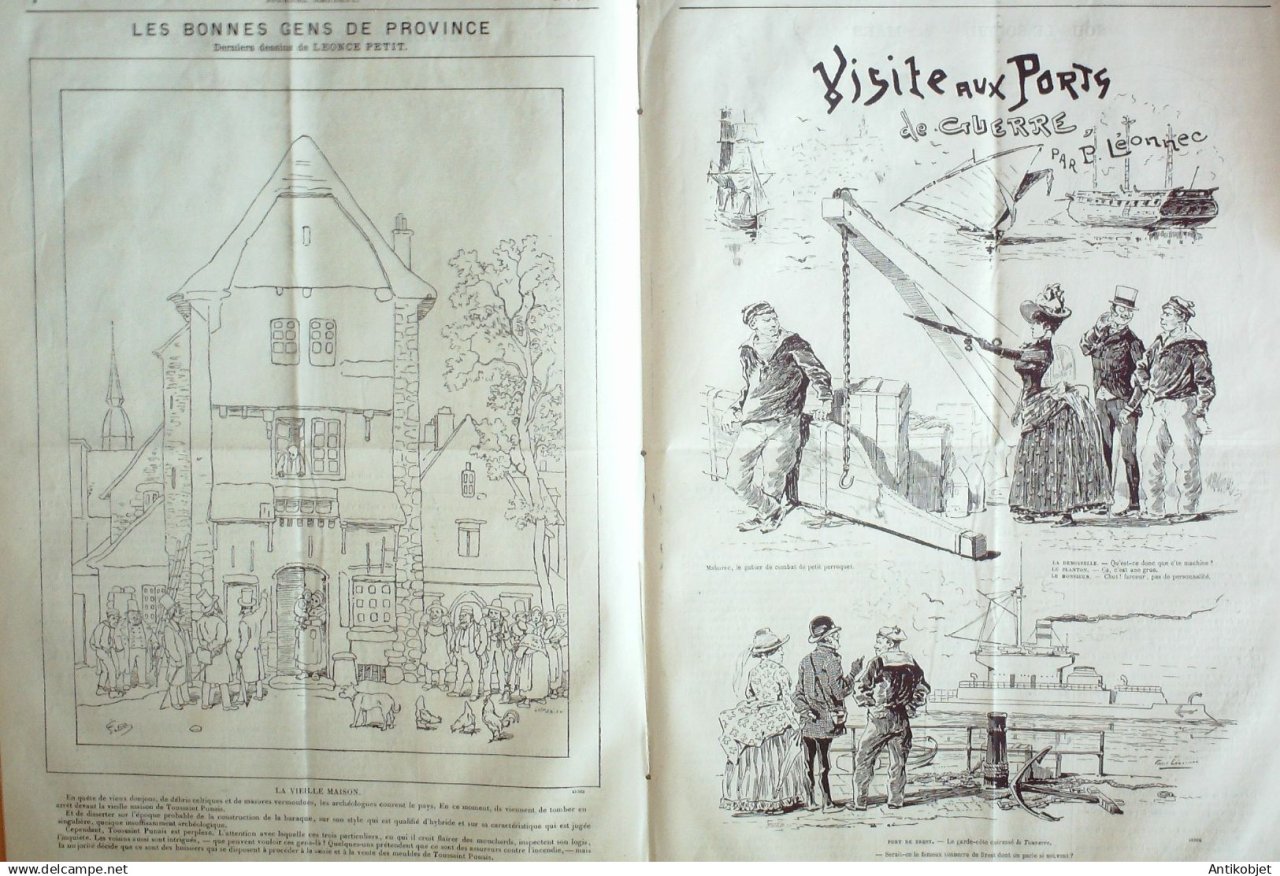 LES BONNES GENS DE PROVINCE
Derniers dessins de LÉONCE PETIT.
LA VIEILLE MAISON.
En quête de vieux donjons, de débris celtiques et de masures vermoulues, les archéologues courent le pays. En ce moment, ils viennent de tomber en
arrêt devant la vieille maison de Toussaint Punais.
Et de disserter sur l'époque probable de la construction de la baraque, sur son style qui est qualifié d'hybride et sur sa caractéristique qui est jugée
singulière, quoique insuffisamment archéologique.
Cependant, Toussaint Punais est perplexe. L'attention avec laquelle ces trois particuliers, en qui il croit flairer des mouchards, inspectent son logis,
l'inquiète. Les voisins aussi sont intrigués, — que peuvent vouloir ces gens-là? Quelques-uns prétendent que ce sont des assureurs contre l'incendie, — mais
la majorité décide que ce sont des huissiers qui se disposent à procéder à la saisie et à la vente des meubles de Toussaint Punais.
Visite aux Ports
de Guerre,
par P. Léonnec
Mahurec, le gabier de combat de petit perroquet.
LA DEMOISELLE. — Qu'est-ce donc que c'te machine?
LE PLANTON. — Ça, c'est une grue.
LE MONSIEUR. — Chut! farceur, pas de personnalité.
PORT DE BREST. — Le garde-côte cuirassé le Tonnerre.
— Serait-ce le fameux tonnerre de Brest dont on parle si souvent?
Antikobjet